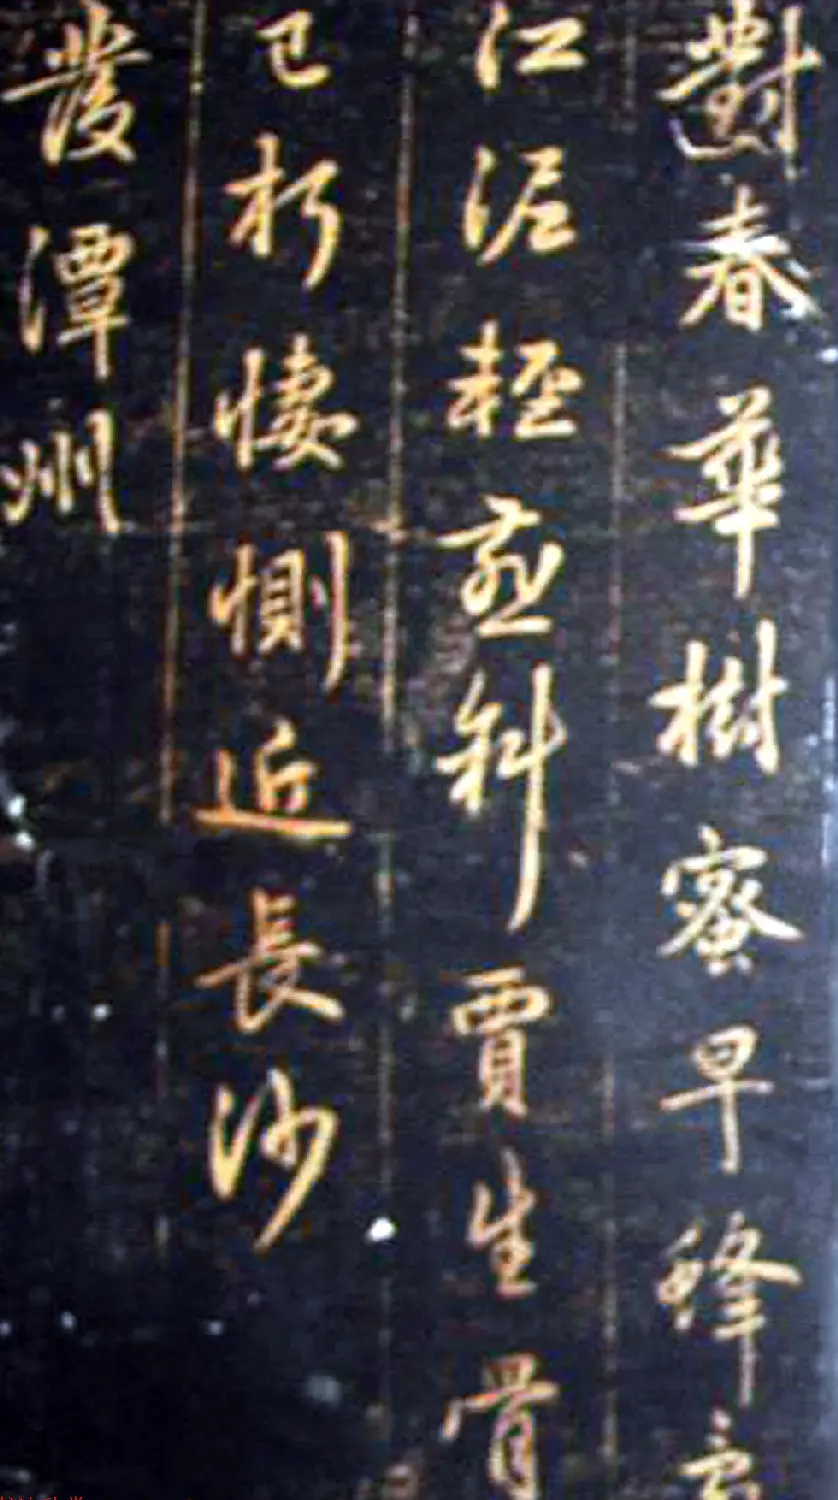 對春華樹蜜早蜂
江泥輕燕斜賈生骨
已朽悽惻近長沙
發潭州